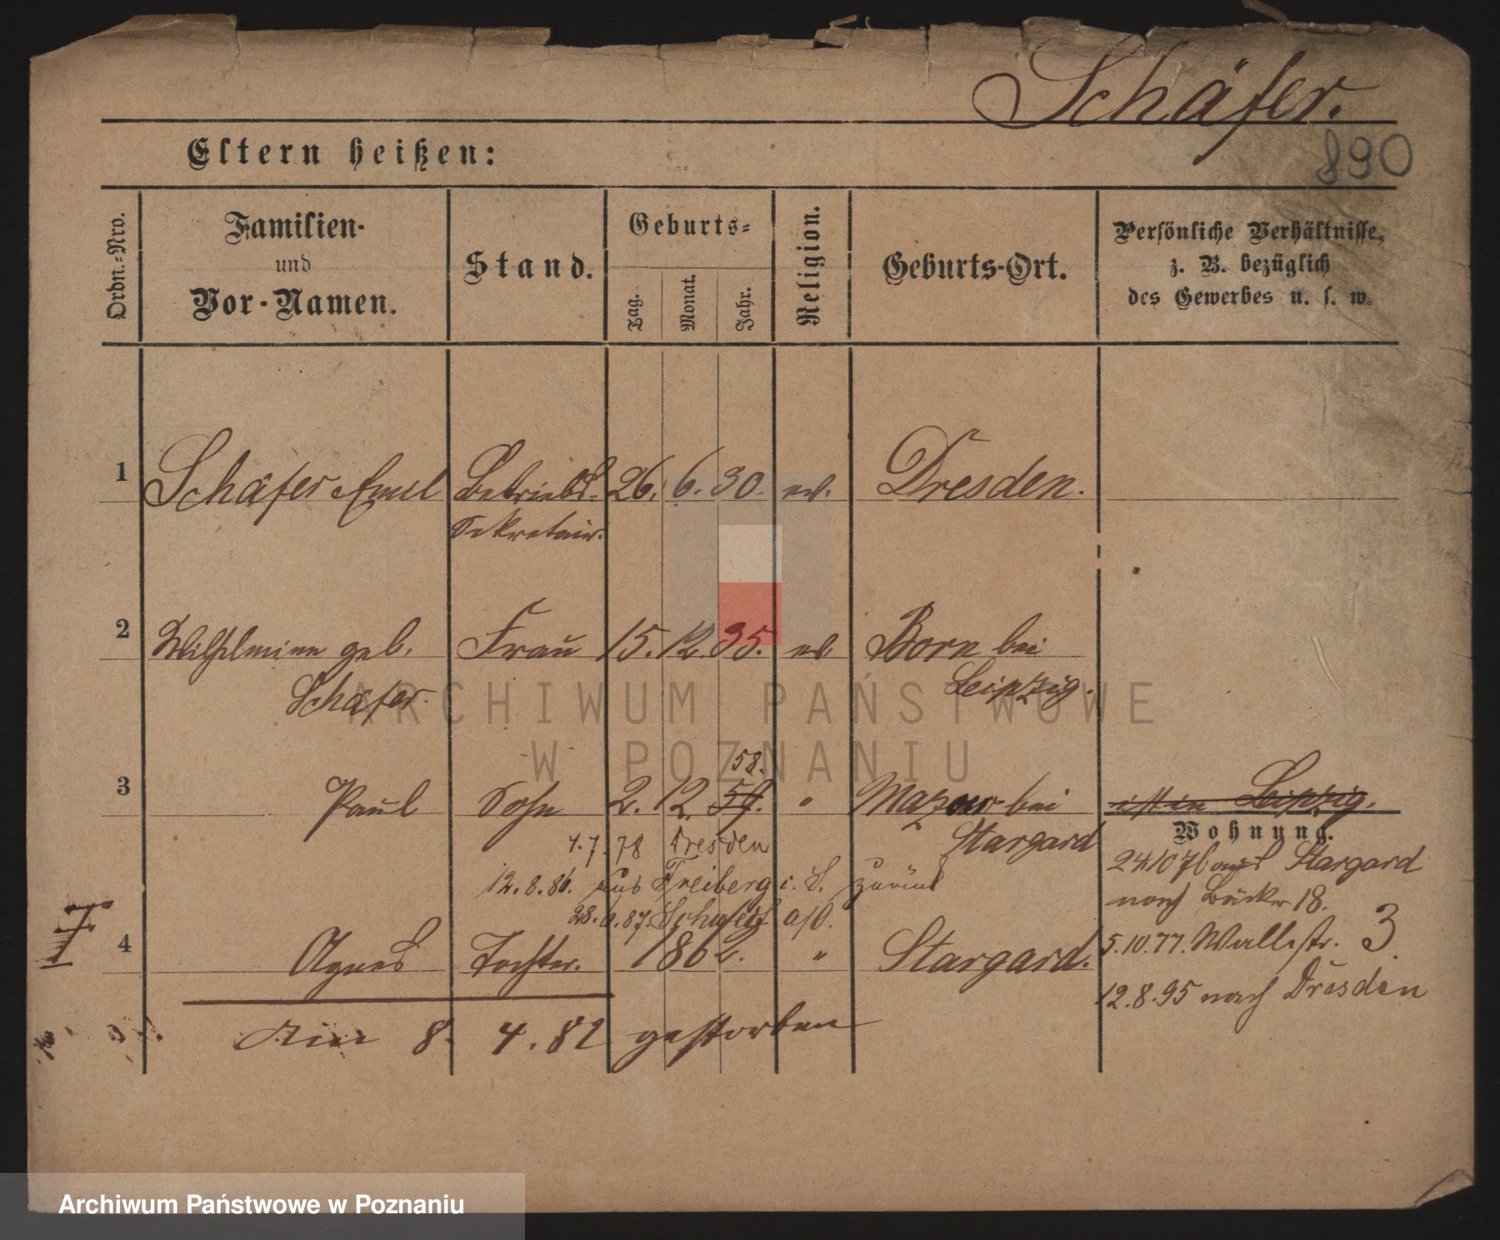 Schäfer.
890
Eltern heißen:
Ordn.-Nro.
Familien-
und
Vor-Namen.
Stand.
Geburts-
Tag.
Monat.
Jahr.
Religion.
Geburts-Ort.
Persönliche Verhältnisse,
z. B. bezüglich
des Gewerbes u. s. w.
1 Schäfer Emil Betriebs- 26. 6. 30. ev. Dresden.
Sekretair.
2 Wilhelmine geb. Frau 15. 12. 35. ev. Born bei
Schäfer. Leipzig.
ARCHIWUM PAŃSTWOWE
W POZNANIU
58.
3 Paul Sohn 2. 12. 59. " bei ist in Leipzig.
Stargard
Wohnung.
4.7.78 Dresden
24.10 76 aus Stargard
12.8.86. aus Freiberg i. S. zurück
nach Bäcker 18.
28. 6. 87. a/O.
4 Agnes Tochter. 1862. " Stargard.
5.10.77. Wallstr. 3.
12.8.95 nach Dresden
8. 4. 82 gestorben
Archiwum Państwowe w Poznaniu